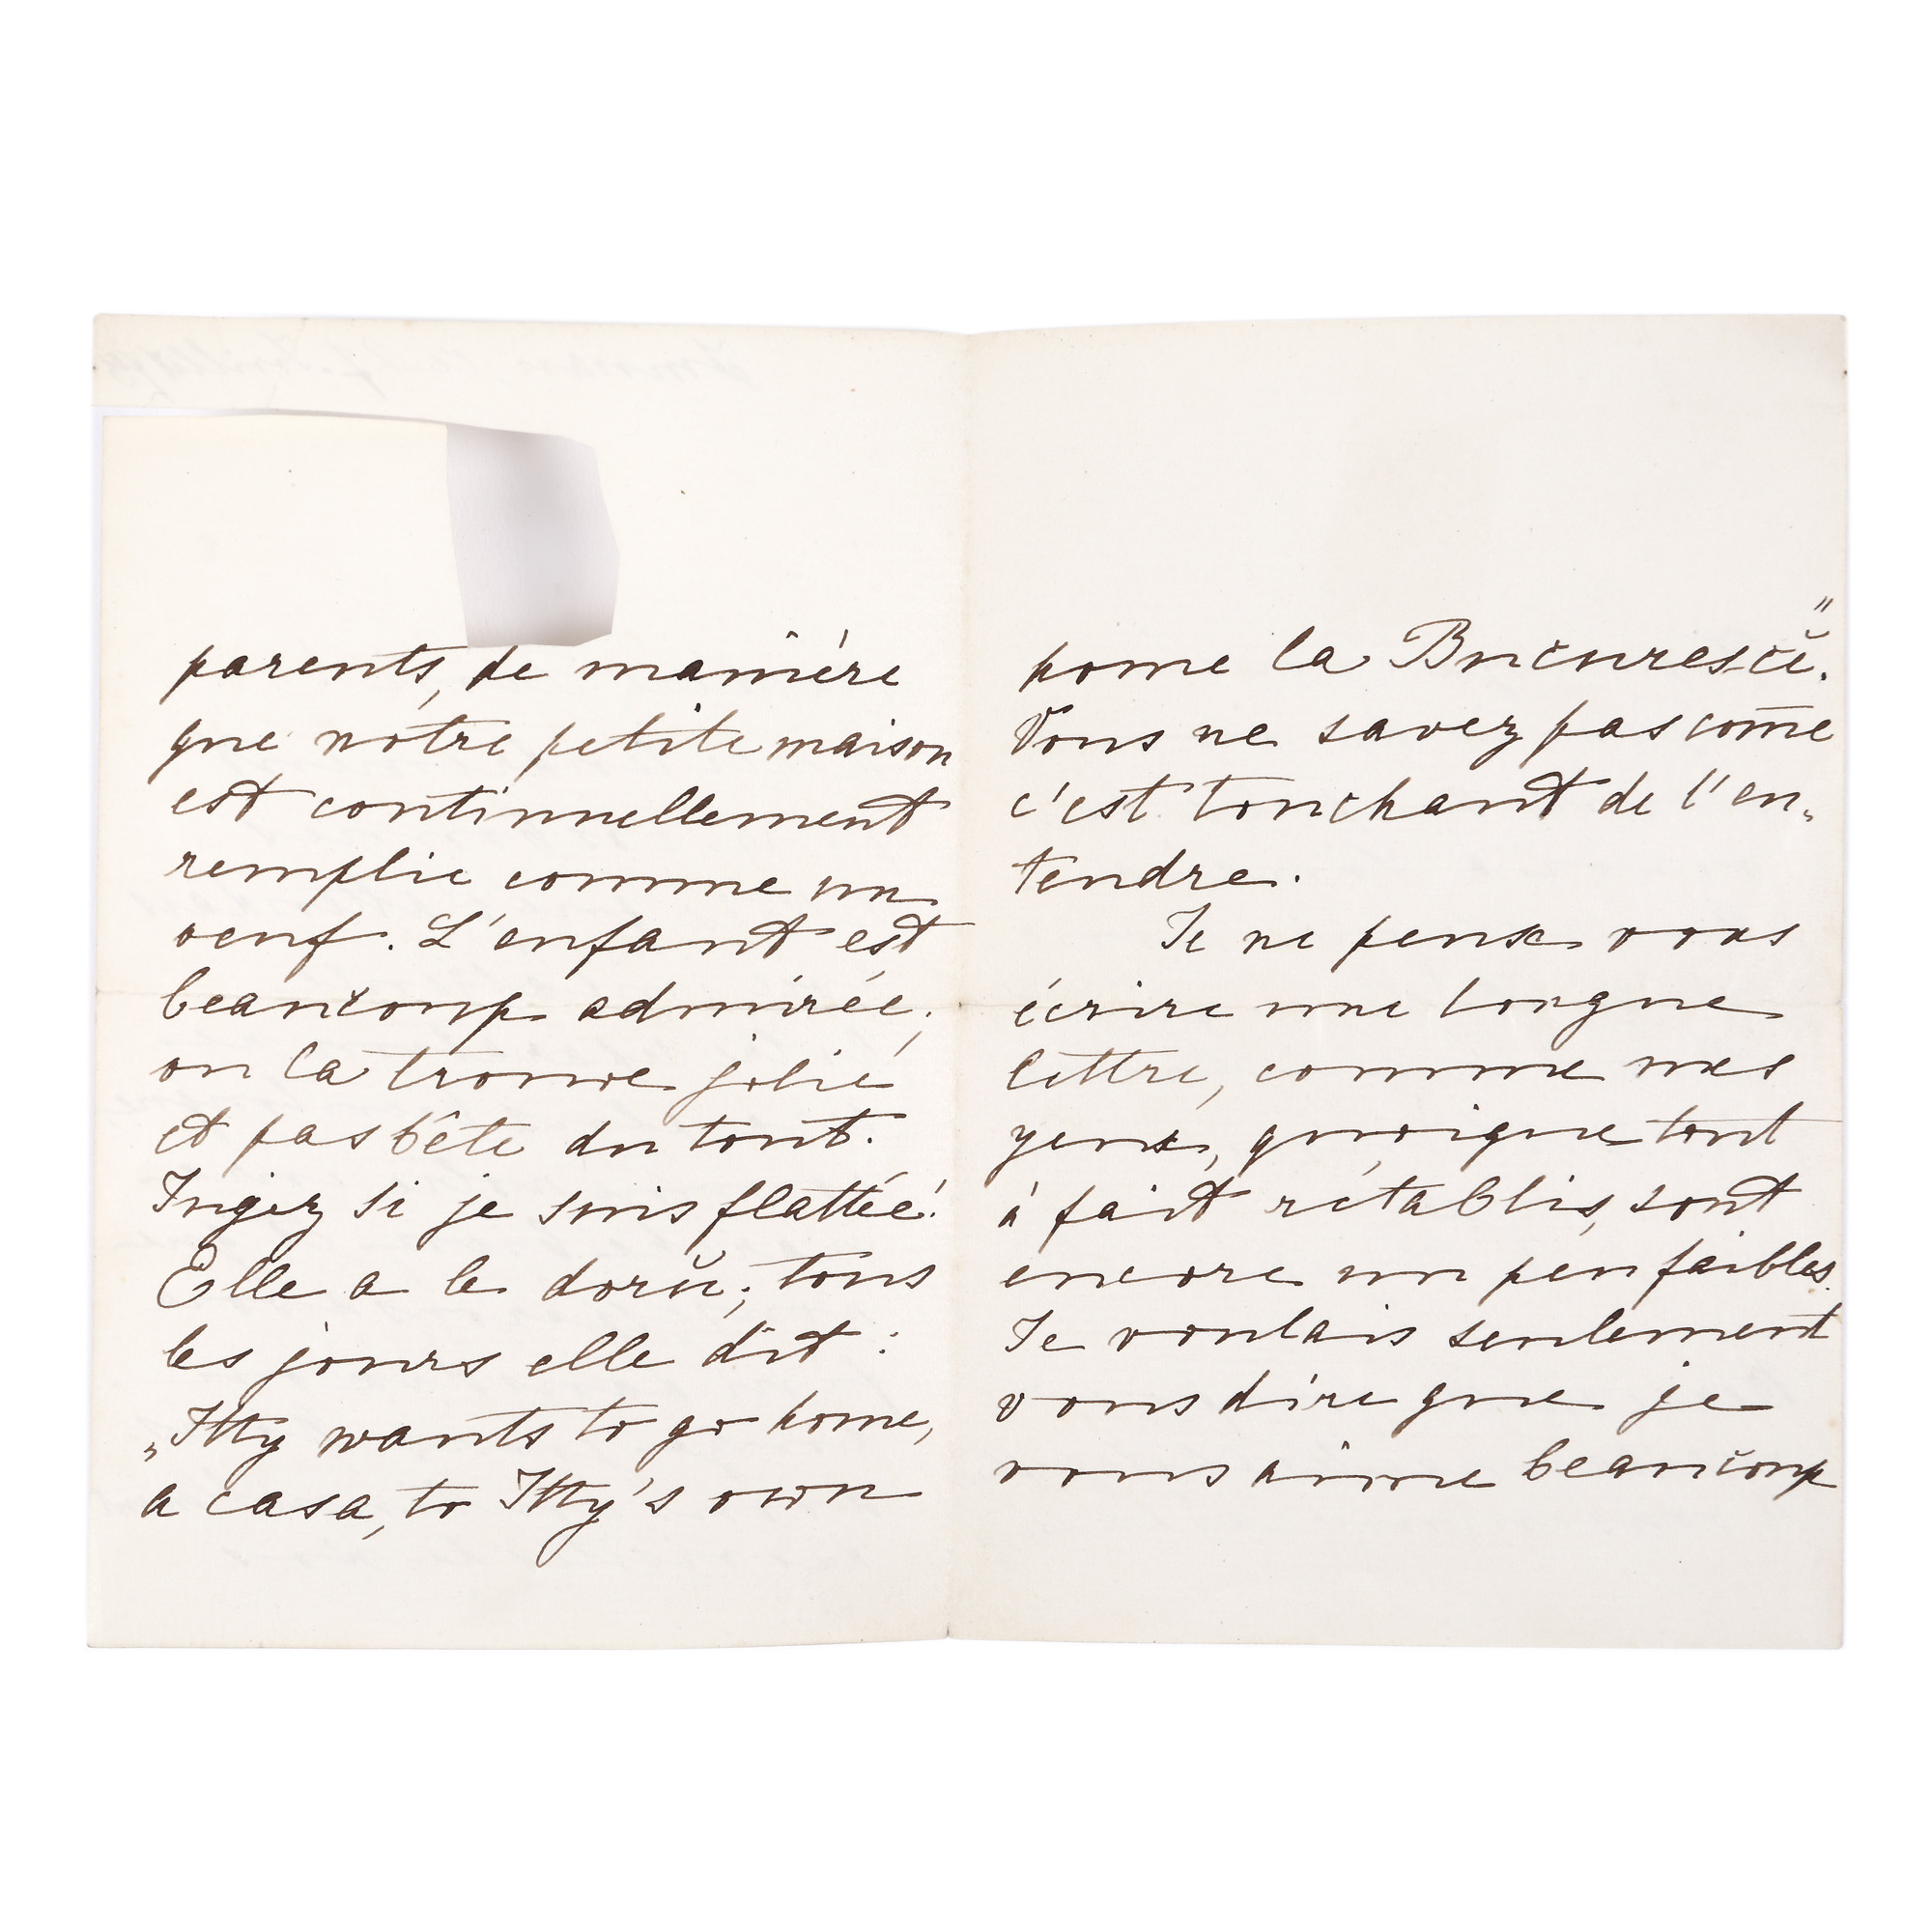 parents, de manière
que nôtre petite maison
est continuellement
remplie comme un
oeuf. L'enfant est
beaucoup admirée;
on la trouve jolie
et pas bête du tout.
Jugez si je suis flattée!
Elle a le dorŭ; tous
les jours elle dit :
„Itty wants to go home,
a casa, to Itty's own
home la Bucurescĭ."
Vous ne savez pas com̄e
c'est touchant de l'en-
tendre.
Je ne pense vous
écrire une longue
lettre, comme mes
yeux, quoique tout
à fait rétablis, sont
encore un peu faibles.
Je voulais seulement
vous dire que je
vous aime beaucoup